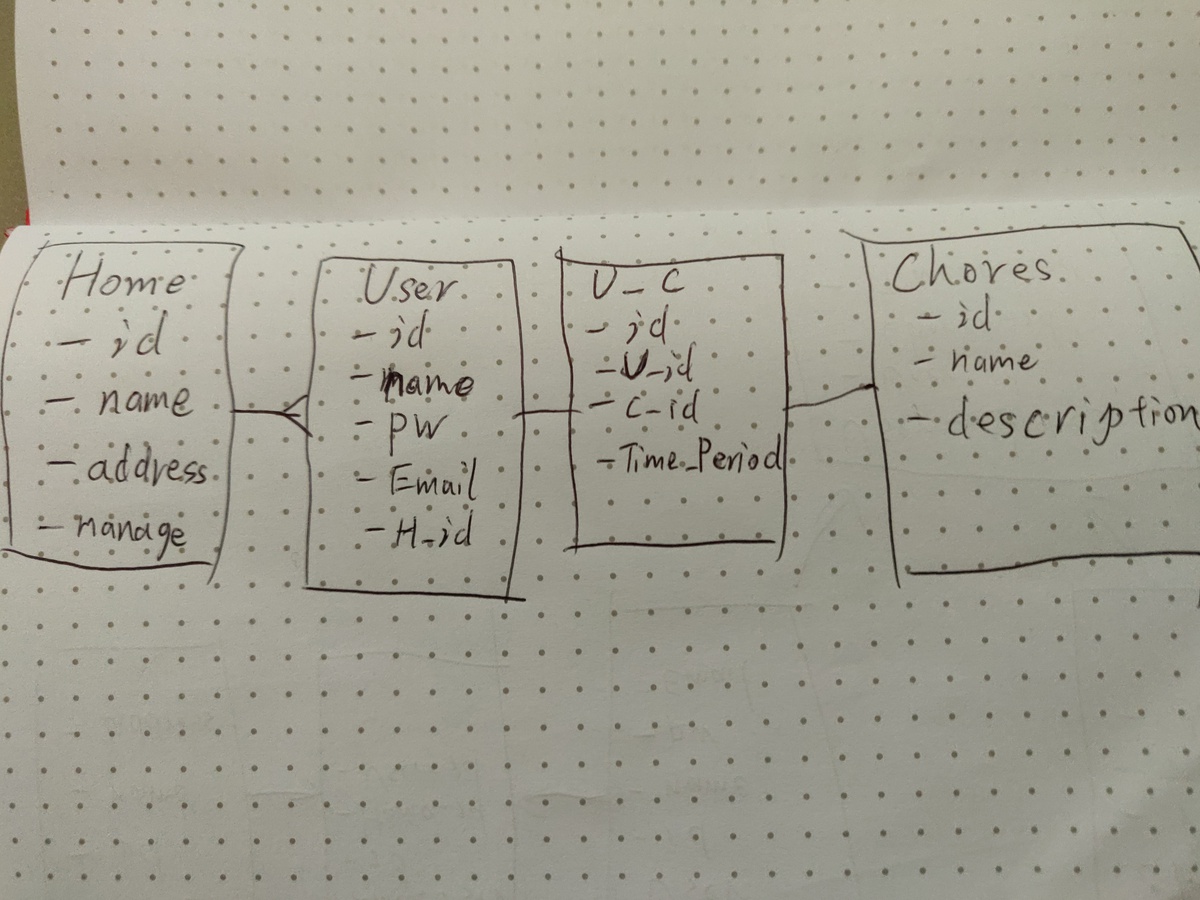 Home
- id
- name
- address
- manage
User
- id
- name
- PW
- Email
- H_id
U_C
- id
- U_id
- C_id
- Time_Period
Chores
- id
- name
- description